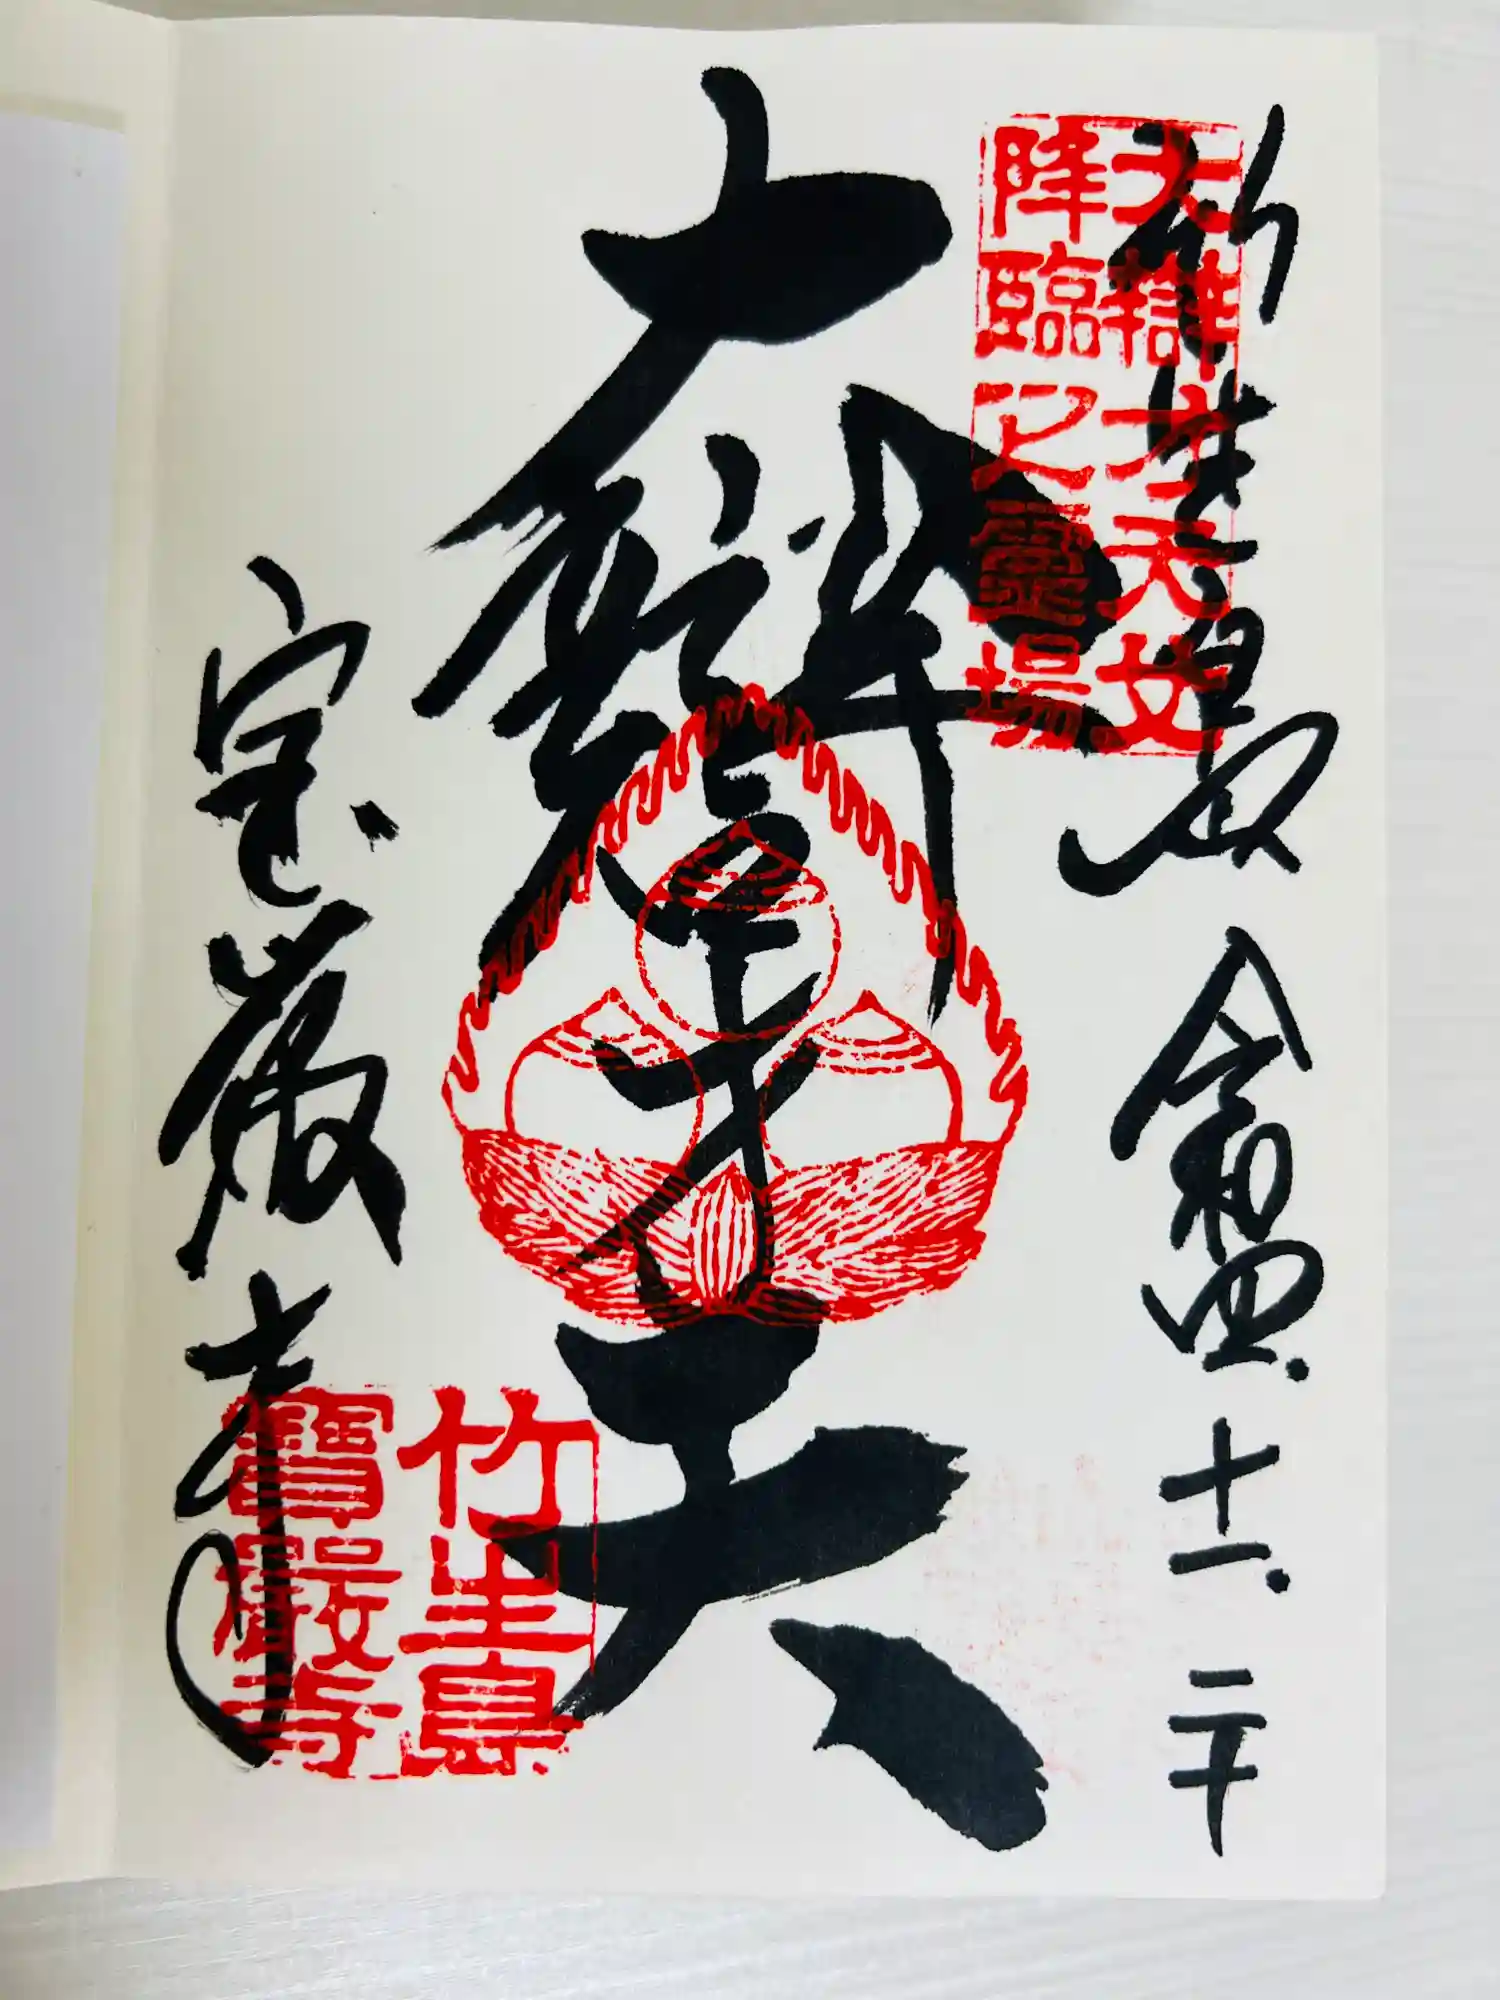 竹生島 令和四.十一.二十
大辯才天女
降臨之靈場
大辯才天
宝厳寺
竹生島
寶嚴寺